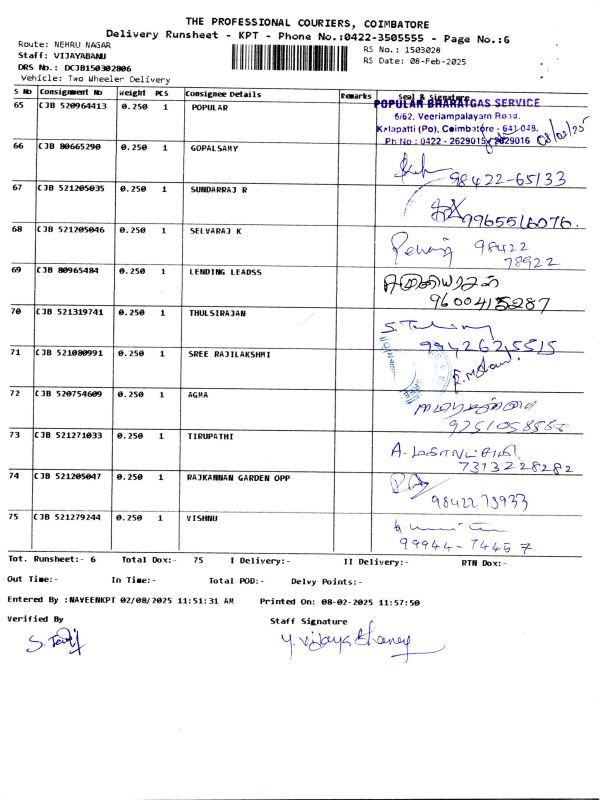 THE PROFESSIONAL COURIERS, COIMBATORE
Delivery Runsheet - KPT - Phone No.:0422-3505555 - Page No.:6
Route: NEHRU NAGAR
RS No.: 1503028
Staff: VIJAYABANU
RS Date: 08-Feb-2025
DRS No.: DCJB150302806
Vehicle: Two Wheeler Delivery
S No Consignment No Weight PCS Consignee Details Remarks Seal & Signature
65 CJB 520964413 0.250 1 POPULAR
POPULAR BHARATGAS SERVICE
5/62, Veeriampalayam Road,
Kalapatti (Po), Coimbatore - 641 048.
Ph No : 0422 - 2629015, 2629016 08/02/25
66 CJB 80665290 0.250 1 GOPALSAMY
98422-65133
67 CJB 521205035 0.250 1 SUNDARRAJ R
9965516076.
68 CJB 521205046 0.250 1 SELVARAJ K
98422
78922
69 CJB 80965484 0.250 1 LENDING LEADSS
9600415287
70 CJB 521319741 0.250 1 THULSIRAJAN
9942625515
71 CJB 521080991 0.250 1 SREE RAJILAKSHMI
72 CJB 520754609 0.250 1 AGMA
73 CJB 521271033 0.250 1 TIRUPATHI
7373228282
74 CJB 521205047 0.250 1 RAJKANNAN GARDEN OPP
9842273933
75 CJB 521279244 0.250 1 VISHNU
99944-74457
Tot. Runsheet:- 6 Total Dox:- 75 I Delivery:- II Delivery:- RTN Dox:-
Out Time:- In Time:- Total POD:- Delvy Points:-
Entered By :NAVEENKPT 02/08/2025 11:51:31 AM Printed On: 08-02-2025 11:57:50
Verified By Staff Signature
Y. Vijaya Bhaney